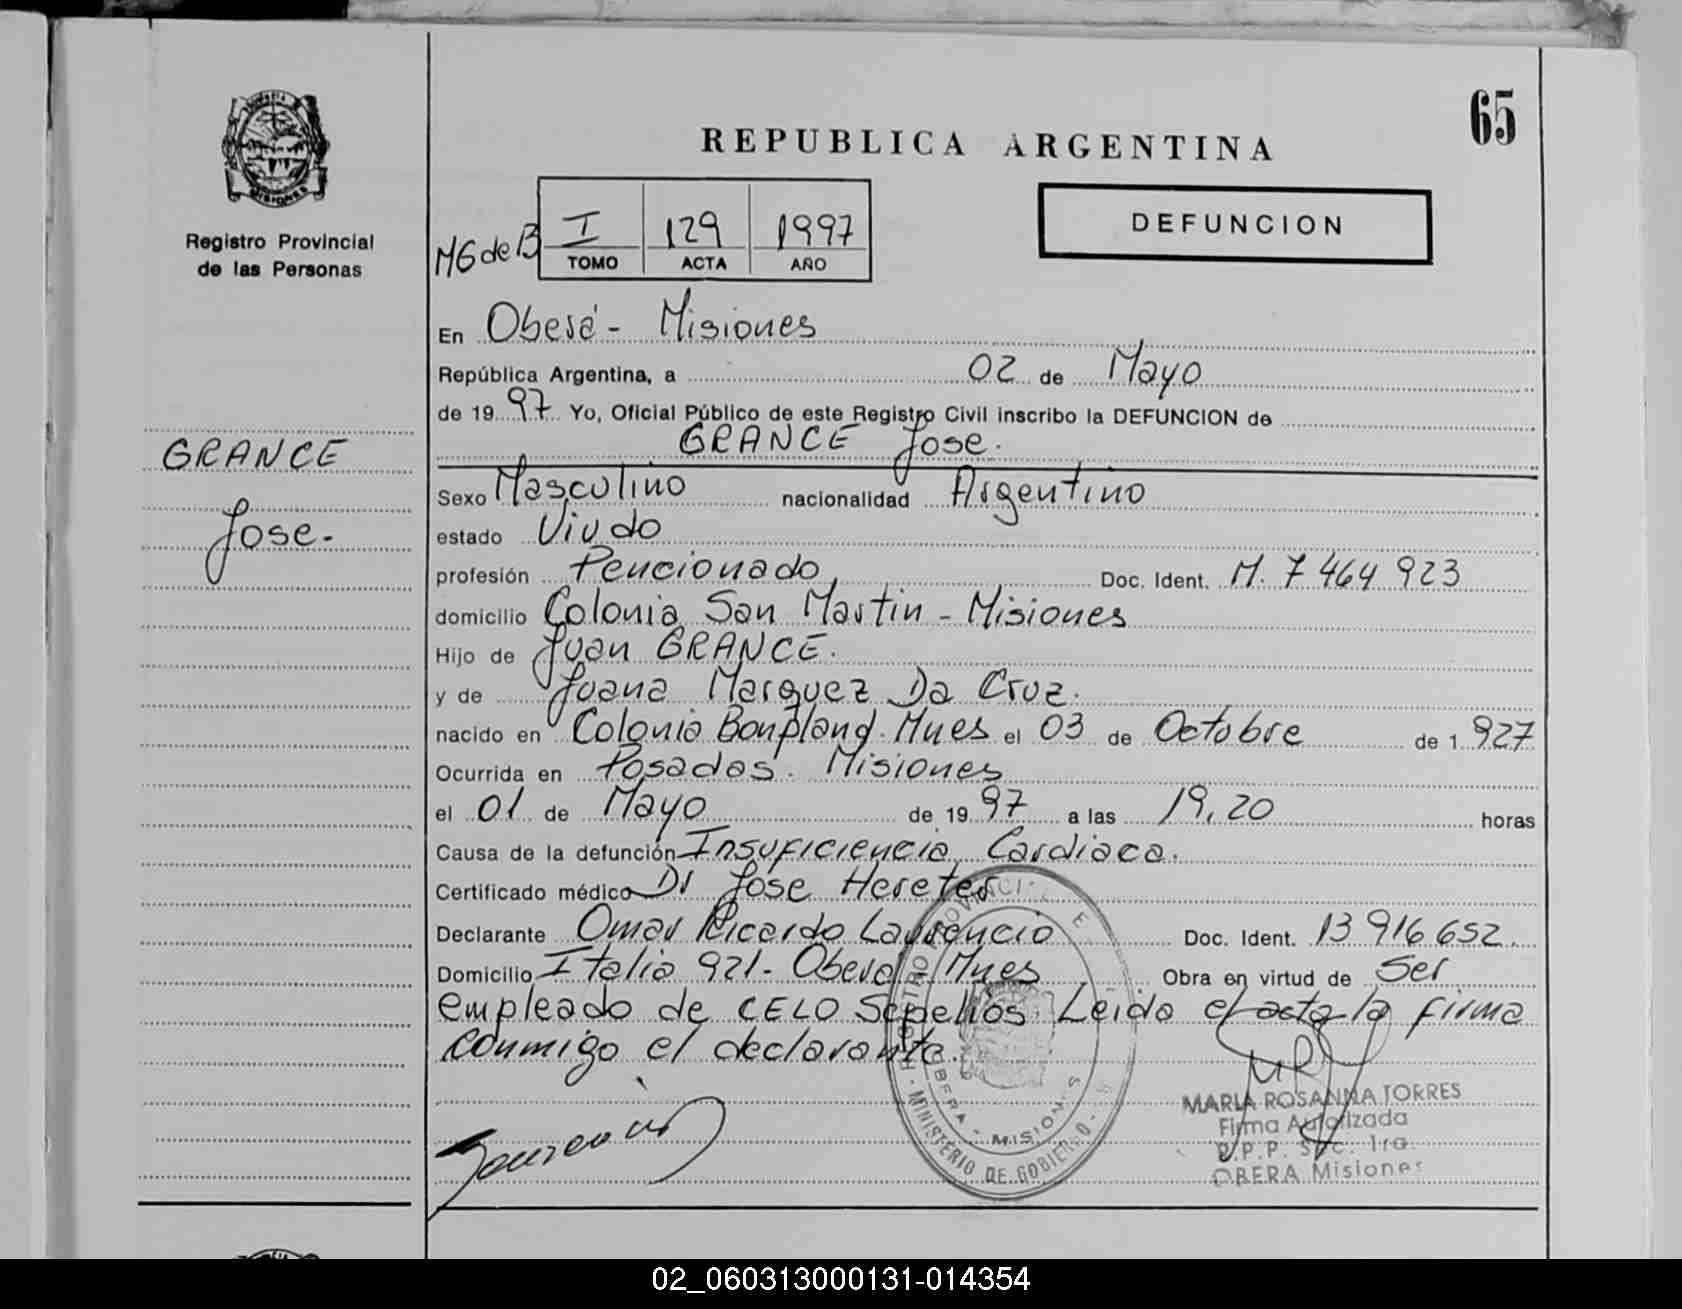 65
REPUBLICA ARGENTINA
MISIONES
Registro Provincial
de las Personas
MG de B
I 129 1997
TOMO ACTA AÑO
DEFUNCION
En Oberá - Misiones
República Argentina, a 02 de Mayo
de 19 97 Yo, Oficial Público de este Registro Civil inscribo la DEFUNCION de
GRANCE Jose.
GRANCE
Jose.
Sexo Masculino nacionalidad Argentino
estado Viudo
profesión Pencionado Doc. Ident. M. 7 464 923
domicilio Colonia San Martin - Misiones
Hijo de Juan GRANCE.
y de Juana Marquez Da Cruz.
nacido en Colonia Bonpland. Mnes el 03 de Octubre de 1 927
Ocurrida en Posadas. Misiones
el 01 de Mayo de 19 97 a las 19,20 horas
Causa de la defunción Insuficiencia Cardiaca.
Certificado médico Dr Jose Hereter
Declarante Omar Ricardo Laurencio Doc. Ident. 13 916 652.
Domicilio Italia 921 - Obera - Mnes Obra en virtud de Ser
empleado de CELO Sepelios. Leida el acta la firma
conmigo el declarante.
MARIA ROSANNA TORRES
Firma Autorizada
R.P.P. Sec. 1ra.
OBERA Misiones
OBERA - MISIONES
MINISTERIO DE GOBIERNO
02_060313000131-014354